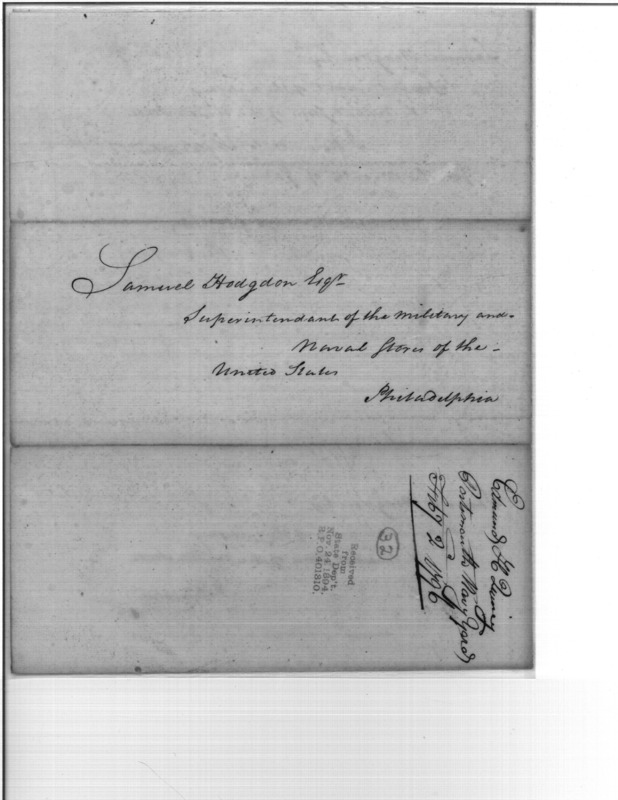 Samuel Hodgdon Esqr.
Superintendant of the Military and
Naval Stores of the
United States
Philadelphia
Edmund H Quincy
Portsmouth Navy Yard
2 1796
32
Received
from
State Dep't.
Nov. 24 1894.
R.P.O. 401810.